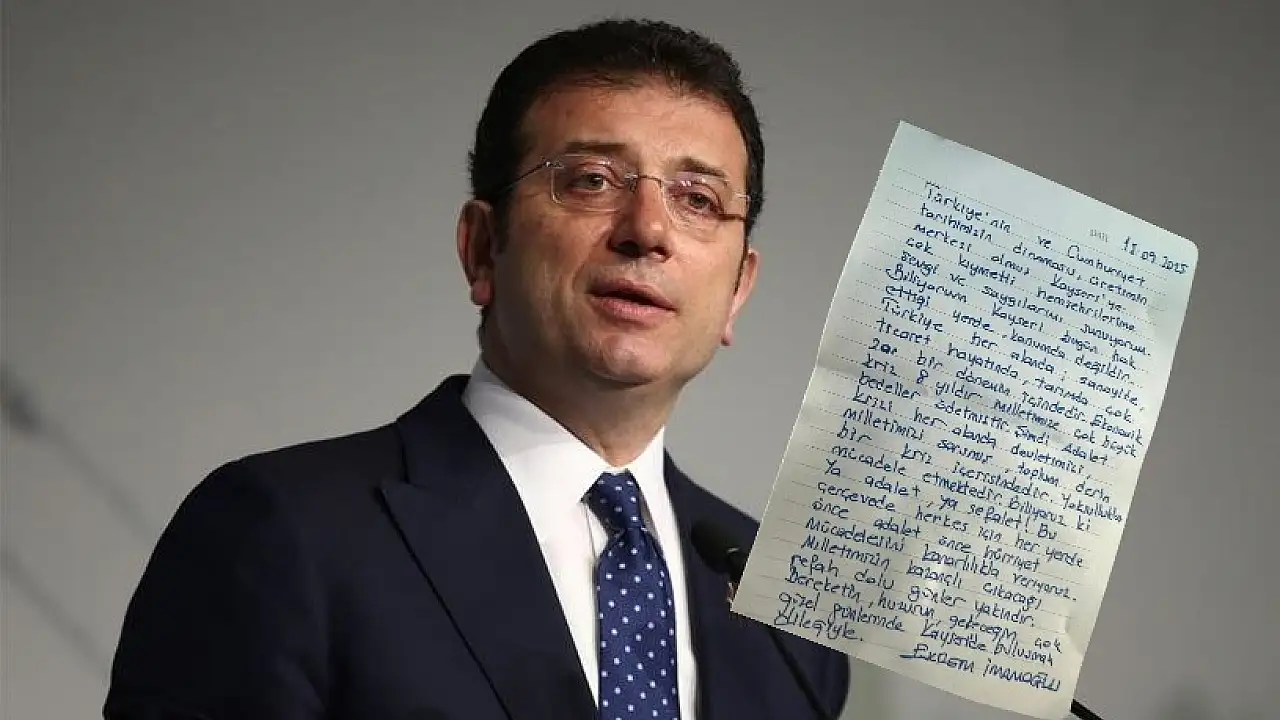 DATE 18.09.2025
Türkiye'nin ve Cumhuriyet
tarihimizin dinamosu, üretimin
merkezi olmuş Kayseri'ye.
çok kıymetli hemşehrilerime
sevgi ve saygılarımı sunuyorum.
Biliyorum Kayseri bugün hak
ettiği yerde, konumda değildir.
Türkiye her alanda; sanayide,
ticaret hayatında, tarımda çok
zor bir dönemin içindedir. Ekonomik
kriz 8 yıldır milletimize çok büyük
bedeller ödetmiştir. Şimdi Adalet
krizi her alanda devletimizi,
milletimizi sarmış, toplum derin
bir kriz içerisindedir. Yoksullukla
mücadele etmektedir. Biliyoruz ki
Ya adalet, ya sefalet! Bu
çerçevede herkes için her yerde
önce adalet önce hürriyet
mücadelesini kararlılıkla veriyoruz.
Milletimizin kazançlı çıkacağı
refah dolu günler yakındır.
Bereketin, huzurun geleceği çok
güzel günlerinde Kayseri'de buluşmak
dileğiyle.
EKREM İMAMOĞLU